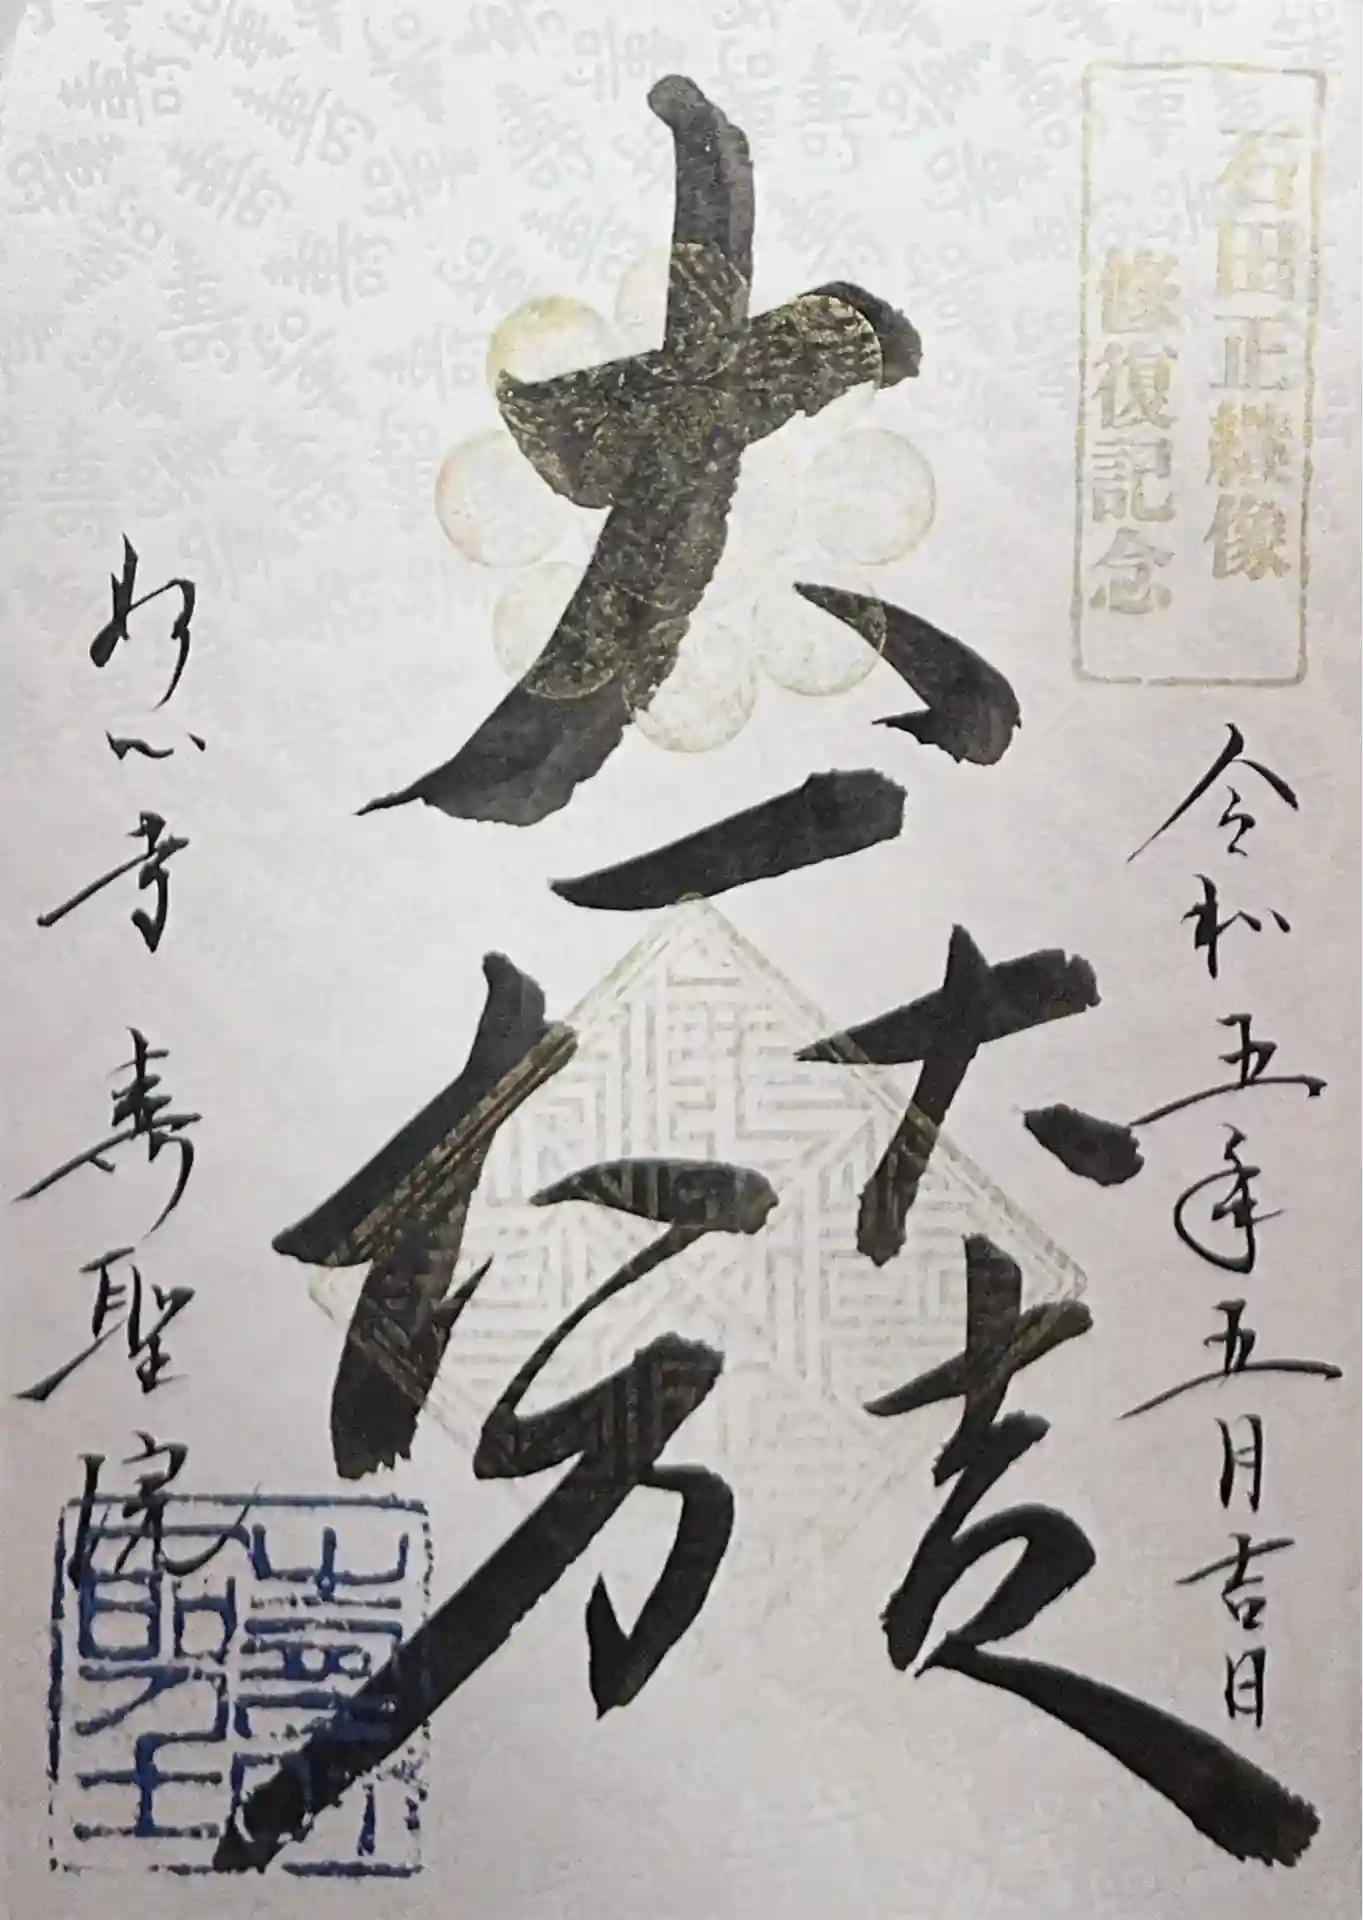 石田正繼像
修復記念
令和五年五月吉日
大一
大吉
大万
妙心寺 寿聖院